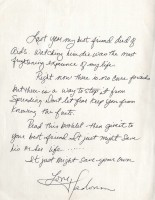 Last year my best friend died of
Aids. Watching him die was the most
frightening experience of my life.
Right now there is no cure, possible
But there is a way to stop it from
Spreading. Don't let fear keep you from
Knowing the facts.
Read this booklet - then give it to
your best friend. It just might save
his or her life
It just might save your own
Love,